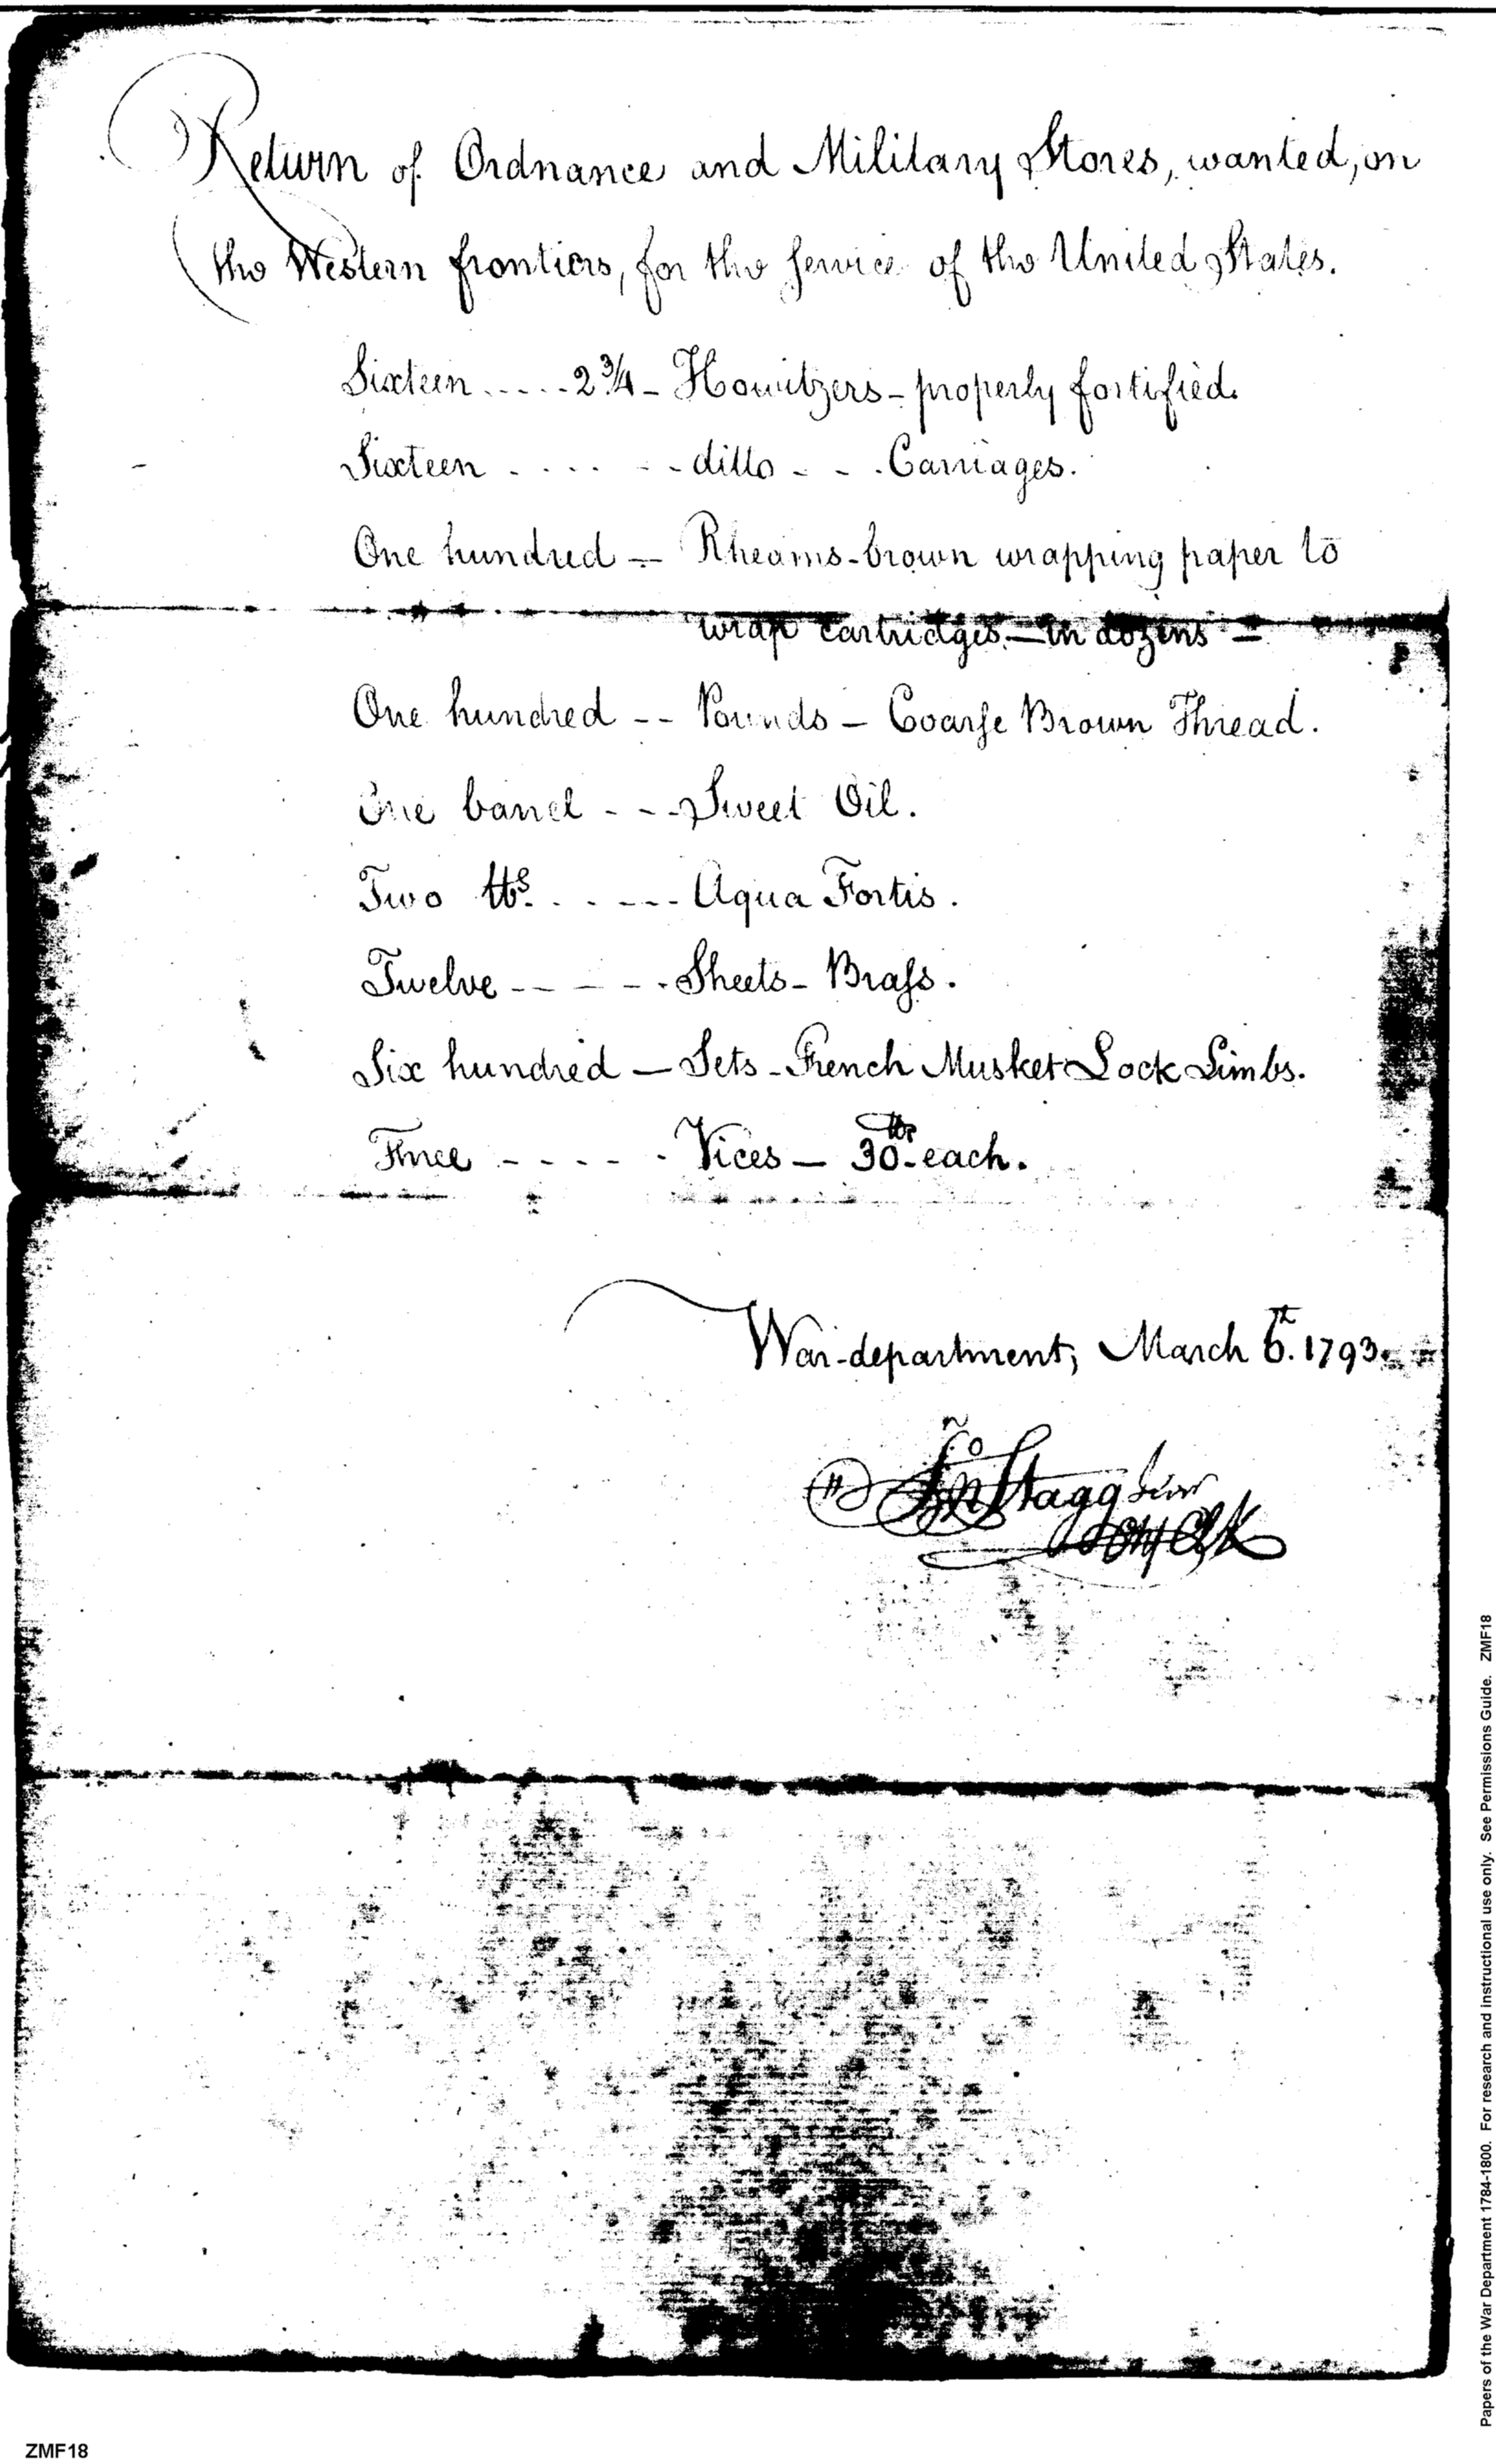 Return of Ordnance and Military Stores, wanted, on
the Western frontiers, for the Service of the United States.
Sixteen ..... 2 3/4 - Howitzers - properly fortified.
Sixteen . . . . . - - ditto - - . Carriages.
One hundred -- Rheams - brown wrapping paper to
wrap cartridges - in dozens -
One hundred -- Pounds - Coarse Brown Thread.
One barrel - - - Sweet Oil.
Two lbs. . . - - - - Aqua Fortis.
Twelve - - - - - . Sheets - Brass.
Six hundred - Sets - French Musket Lock Limbs.
Three - - - - . Vices - 30 lbs - each.
War-department, March 6th. 1793.
Jno Stagg Junr
Chf Clk
Papers of the War Department 1784-1800. For research and instructional use only. See Permissions Guide. ZMF18
ZMF18